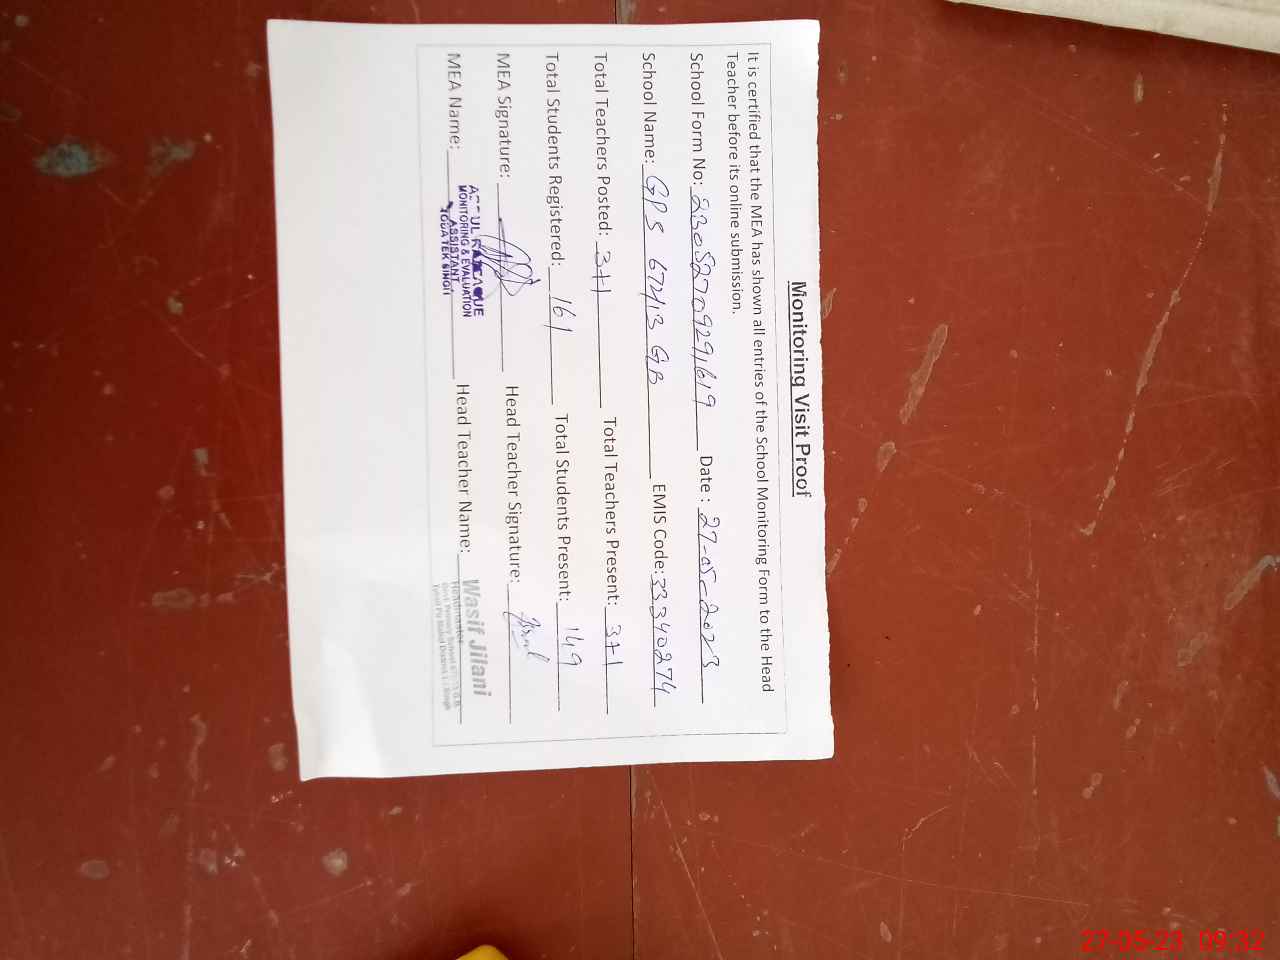 Monitoring Visit Proof
It is certified that the MEA has shown all entries of the School Monitoring Form to the Head
Teacher before its online submission.
School Form No: 23052709291619 Date : 27-05-2023
School Name: GPS 672/13 GB EMIS Code: 33340274
Total Teachers Posted: 3+1 Total Teachers Present: 3+1
Total Students Registered: 161 Total Students Present: 149
MEA Signature: Head Teacher Signature:
MEA Name: Head Teacher Name:
MONITORING & EVALUATION
ASSISTANT
TOBA TEK SINGH
Wasif Jilani
Headmaster
27-05-23 09:32